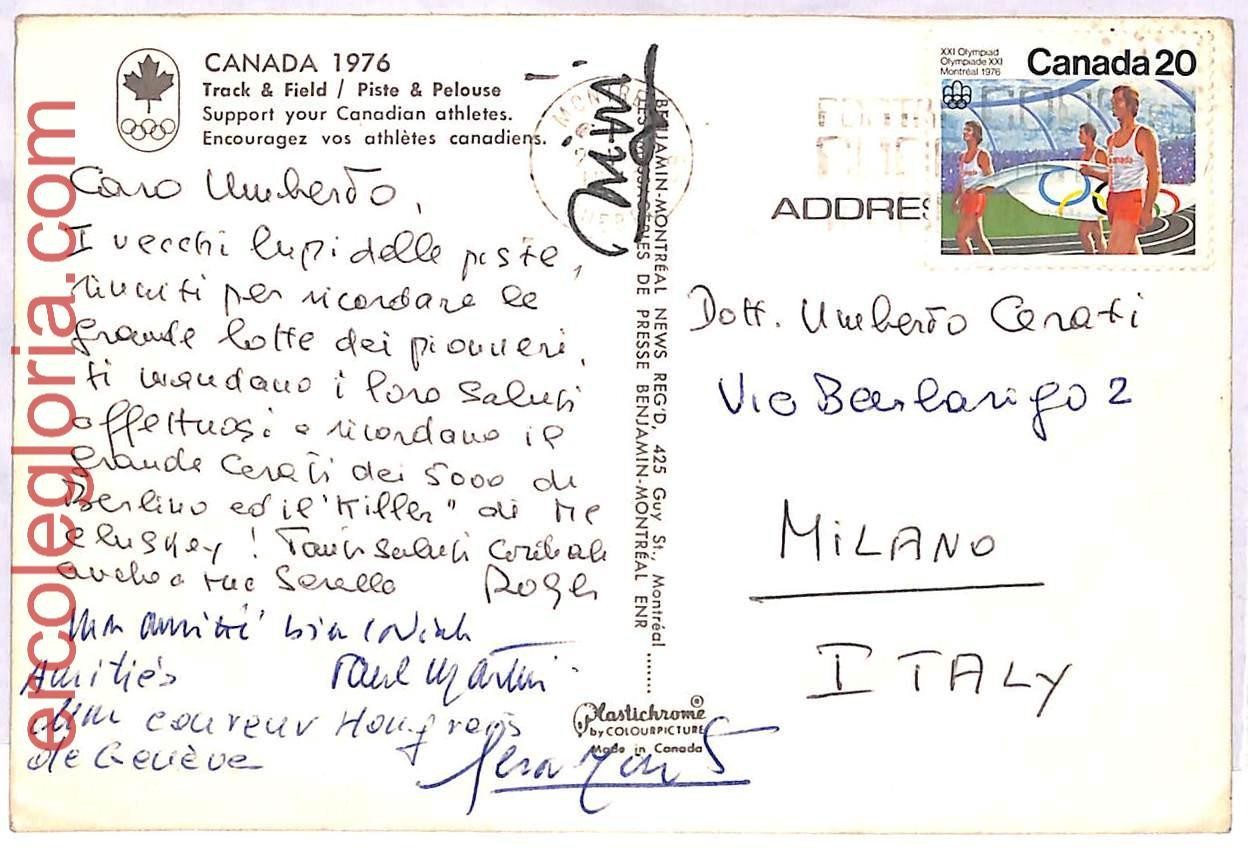 CANADA 1976
Track & Field / Piste & Pelouse
Support your Canadian athletes.
Encouragez vos athlètes canadiens.
Caro Umberto,
I vecchi lupi delle piste,
riuniti per ricordare le
grande lotte dei pionneri,
ti mandano i loro saluti
affettuosi e ricordano il
grande Cerati dei 5000 di
Berlino ed il "Killer" di Mc
Cluskey! Tanti saluti cordiali
anche a tua Sorella
Mon amitié bien cordiale
Amitiés Paul Martin
d'un coureur Hongrois
de Genève
BENJAMIN-MONTRÉAL NEWS REG'D, 425 Guy St., Montréal
DE PRESSE BENJAMIN-MONTRÉAL ENR
Plastichrome ®
by COLOURPICTURE
Made in Canada
MONTREAL
XXI Olympiad
Olympiade XXI
Montréal 1976
Canada 20
Canada
ADDRES
Dott. Umberto Cerati
Via Barbarigo 2
MILANO
ITALY
ercolegloria.com